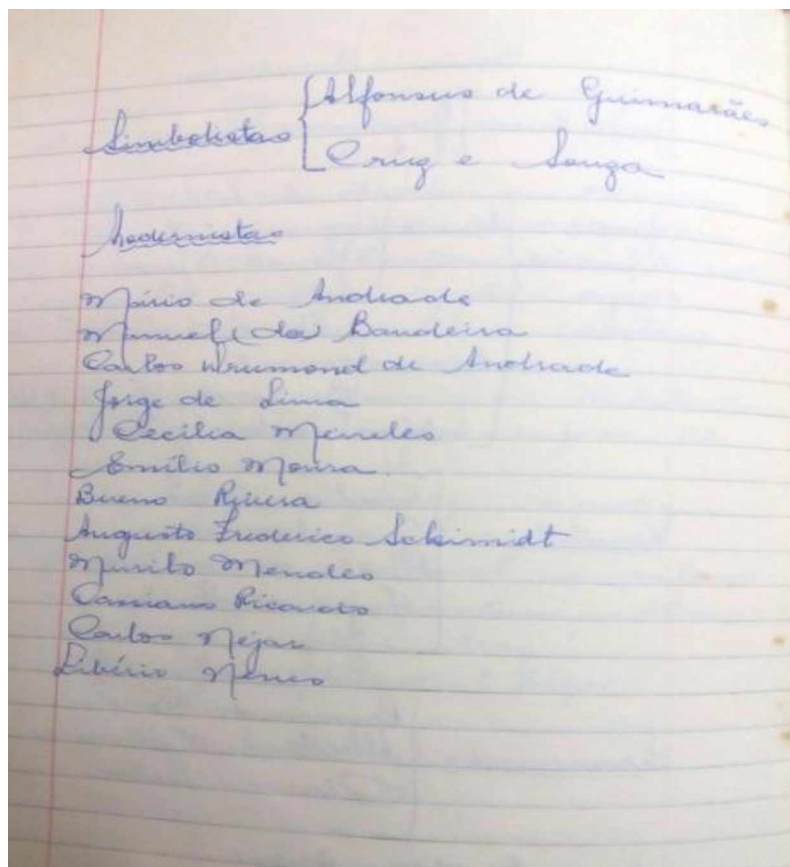 Alfonsus de Guimarães
Simbolistas
Cruz e Souza
Modernistas
Mário de Andrade
Manuel (da) Bandeira
Carlos Drumond de Andrade
Jorge de Lima
Cecília Meireles
Emílio Moura
Bueno Rivera
Augusto Frederico Schimidt
Murilo Mendes
Cassiano Ricardo
Carlos Nejar
Libério Neves